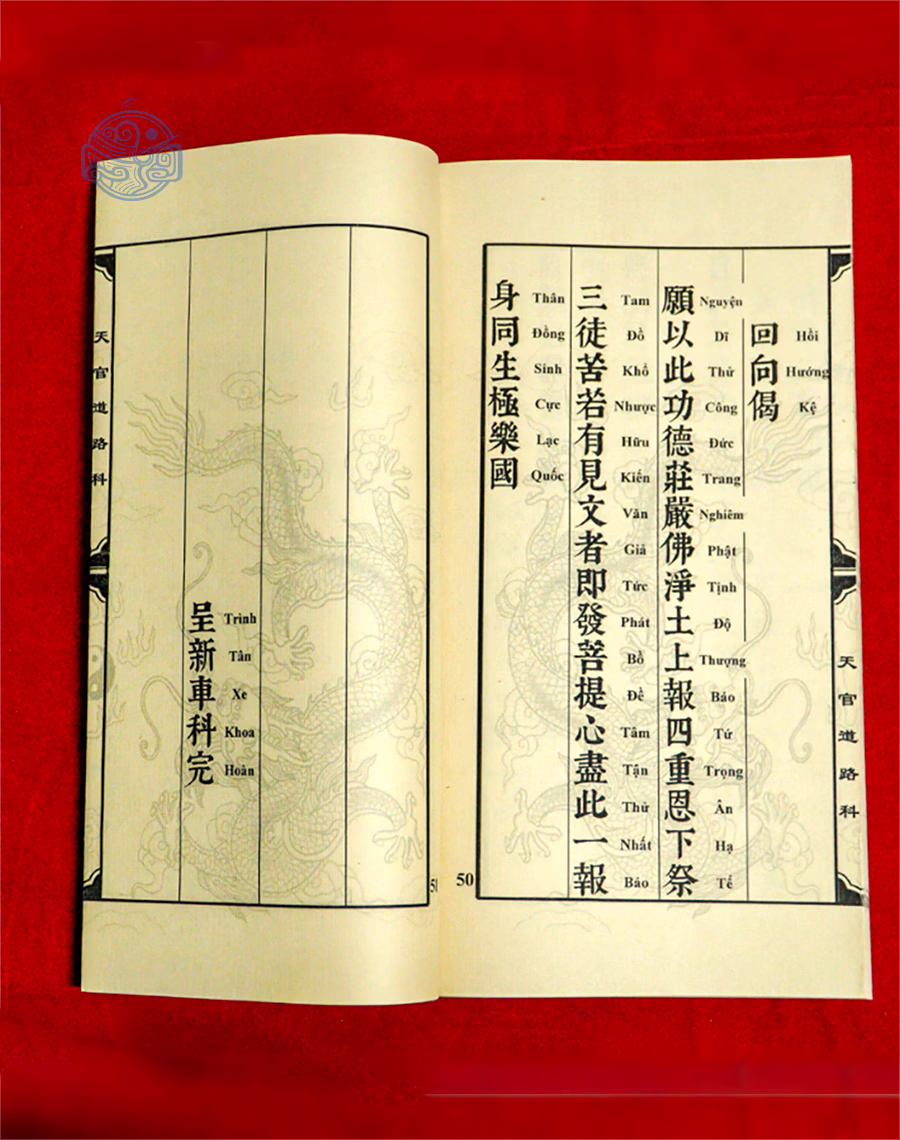 天官道路科
回向偈
Hồi Hướng Kệ
願以此功德莊嚴佛淨土上報四重恩下祭
Nguyện Dĩ Thử Công Đức Trang Nghiêm Phật Tịnh Độ Thượng Báo Tứ Trọng Ân Hạ Tế
三徒苦若有見文者即發菩提心盡此一報
Tam Đồ Khổ Nhược Hữu Kiến Văn Giả Tức Phát Bồ Đề Tâm Tận Thử Nhất Báo
身同生極樂國
Thân Đồng Sinh Cực Lạc Quốc
50
51
呈新車科完
Trình Tân Xe Khoa Hoàn
天官道路科